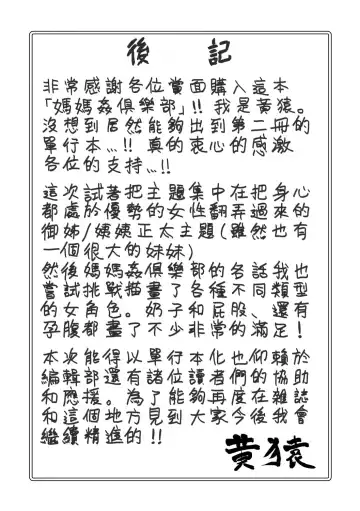 後記
非常感謝各位賞面購入這本
「媽媽姦俱樂部」!! 我是黃猿。
沒想到居然能夠出到第二冊的
單行本…!! 真的衷心的感激
各位的支持…!!
這次試著把主題集中在把身心
都處於優勢的女性翻弄過來的
御姊/姨姨正太主題(雖然也有
一個很大的妹妹)
然後媽媽姦俱樂部的各話我也
嘗試挑戰描畫了各種不同類型
的女角色。奶子和屁股、還有
孕腹都畫了不少非常的滿足!
本次能得以單行本化也仰賴於
編輯部還有諸位讀者們的協助
和應援。為了能夠再度在雜誌
和這個地方見到大家今後我會
繼續精進的!!
黃猿